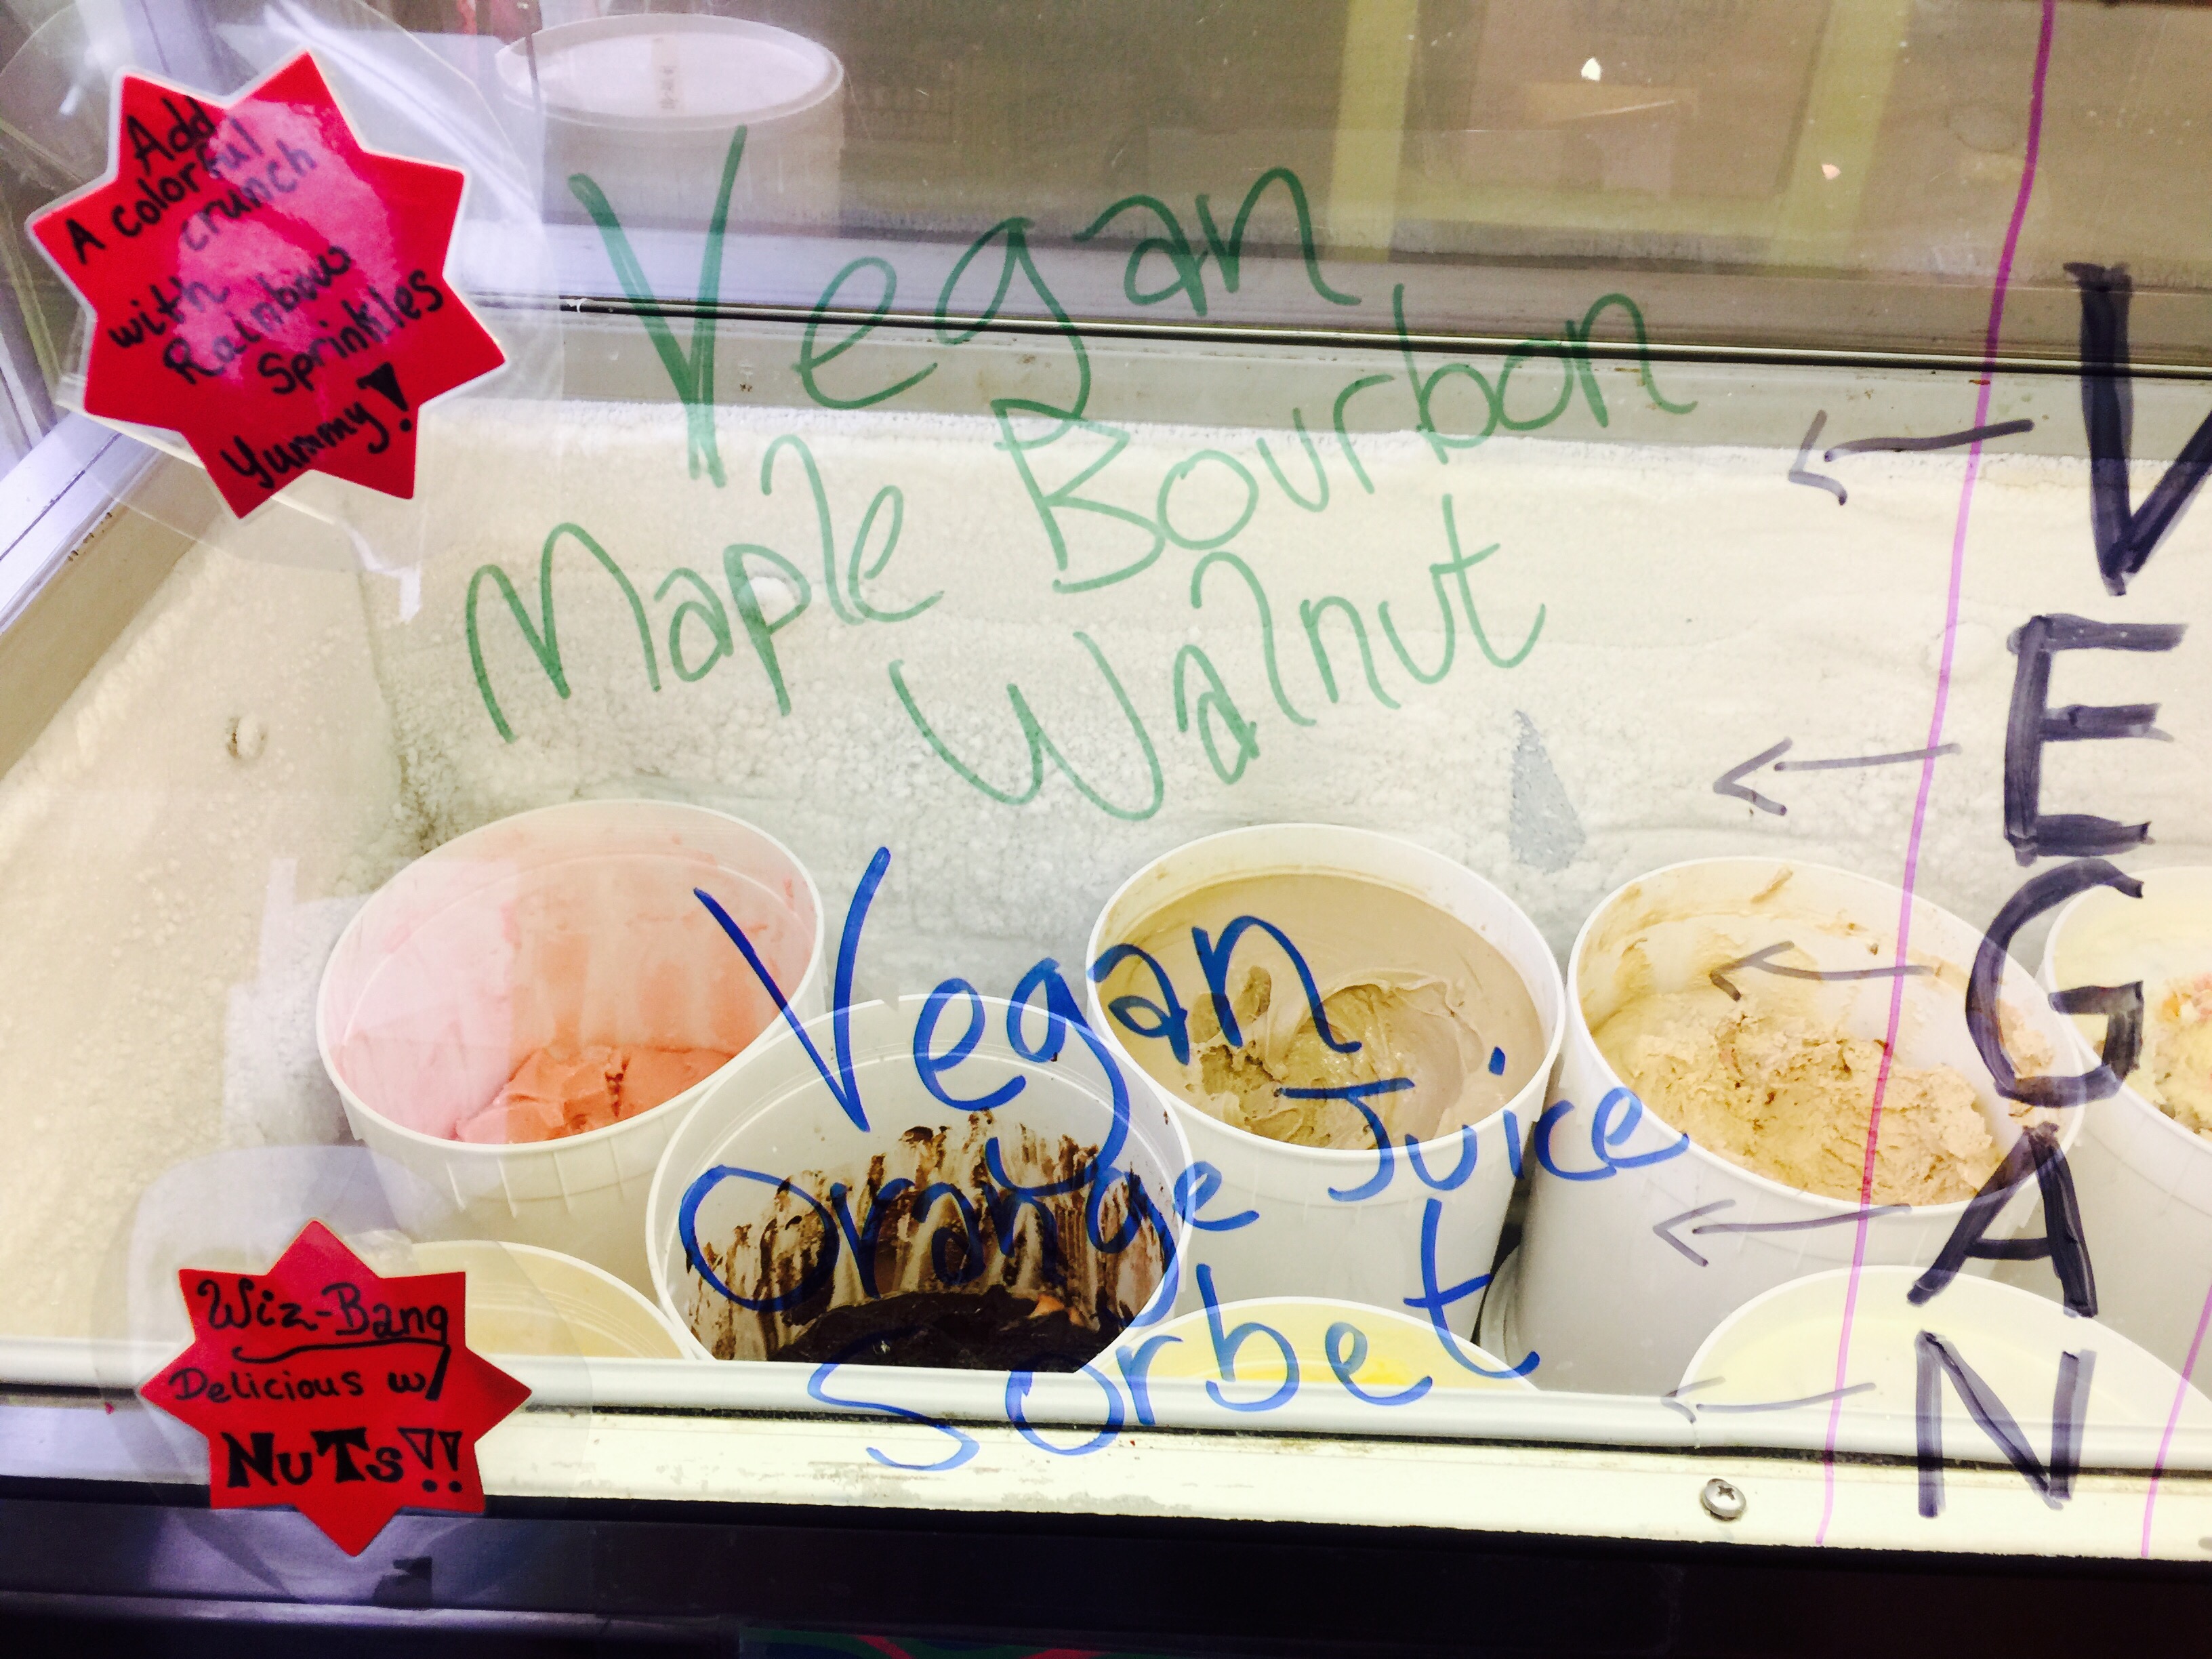 Add
A colorful
crunch
with
Rainbow
Sprinkles
Yummy!
Vegan
Maple Bourbon
Walnut
Vegan
Orange Juice
Sorbet
Wiz-Bang
Delicious w/
NuTs!!
VEGAN